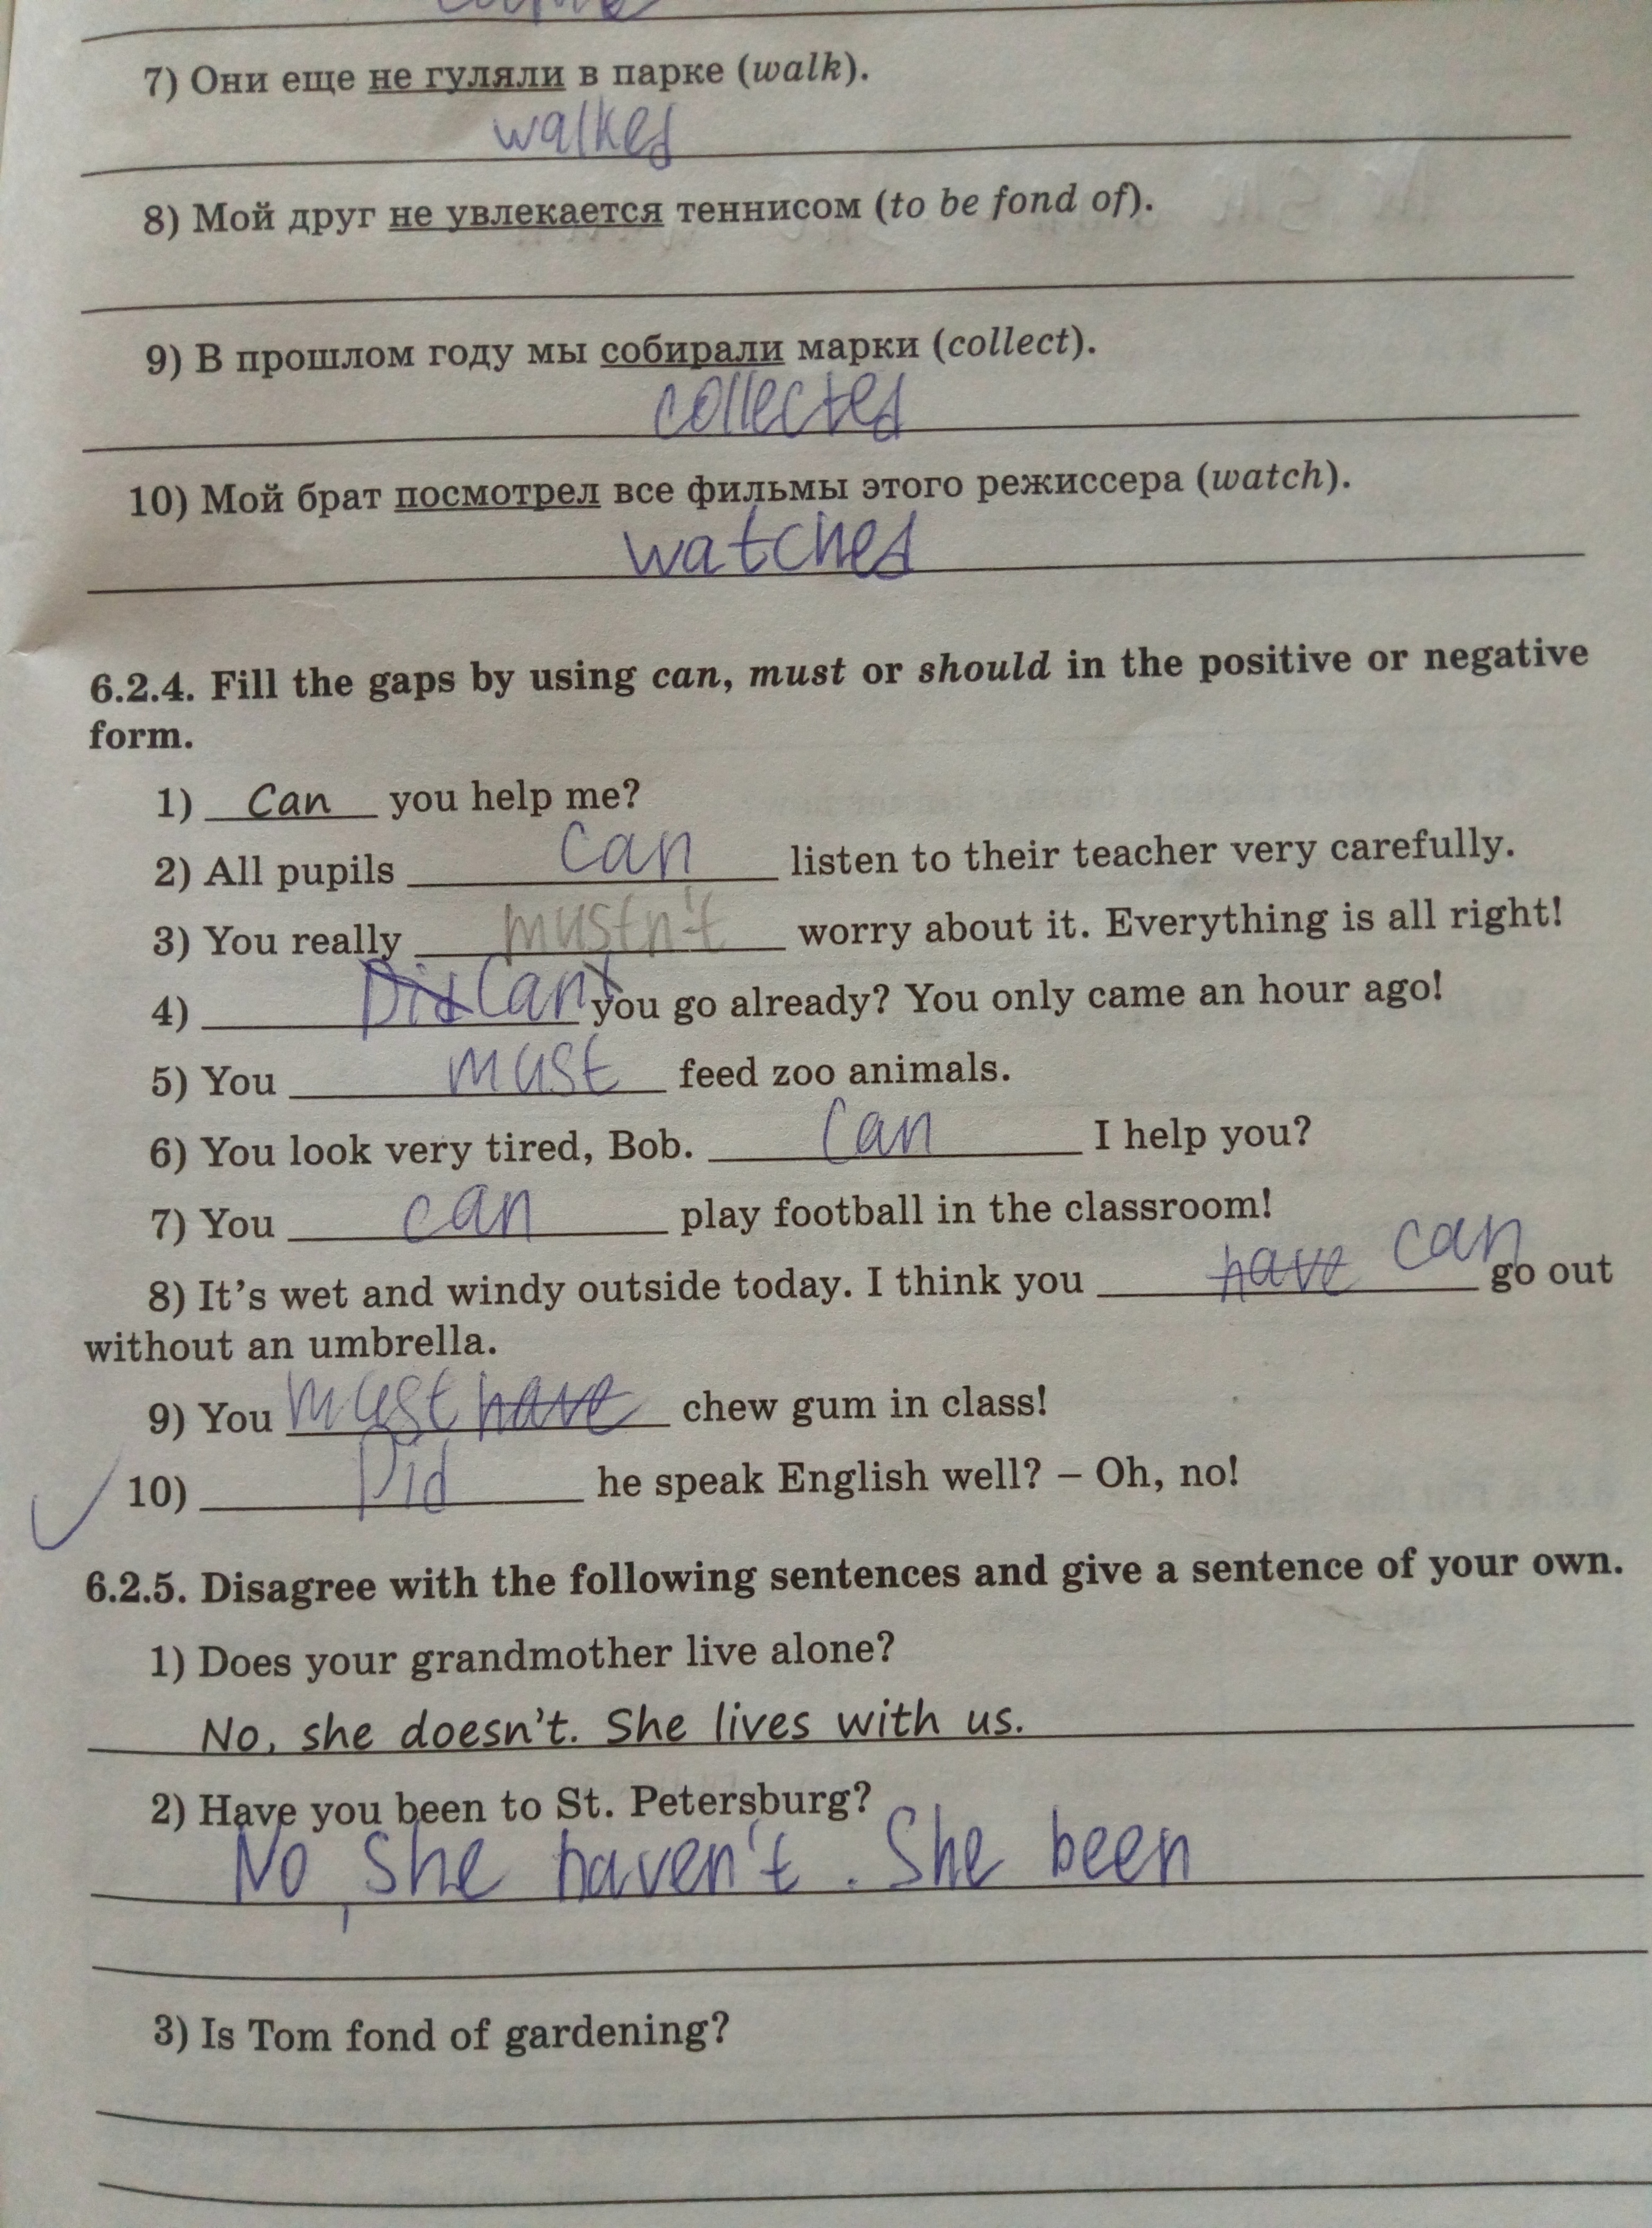 7) Они еще не гуляли в парке (walk).
walked
8) Мой друг не увлекается теннисом (to be fond of).
9) В прошлом году мы собирали марки (collect).
collected
10) Мой брат посмотрел все фильмы этого режиссера (watch).
watched
6.2.4. Fill the gaps by using can, must or should in the positive or negative
form.
1) Can you help me?
2) All pupils can listen to their teacher very carefully.
3) You really mustn't worry about it. Everything is all right!
4) Did Can you go already? You only came an hour ago!
5) You must feed zoo animals.
6) You look very tired, Bob. Can I help you?
7) You can play football in the classroom!
8) It's wet and windy outside today. I think you have can go out
without an umbrella.
9) You must have chew gum in class!
10) Did he speak English well? – Oh, no!
6.2.5. Disagree with the following sentences and give a sentence of your own.
1) Does your grandmother live alone?
No, she doesn't. She lives with us.
2) Have you been to St. Petersburg?
No, She haven't. She been
3) Is Tom fond of gardening?